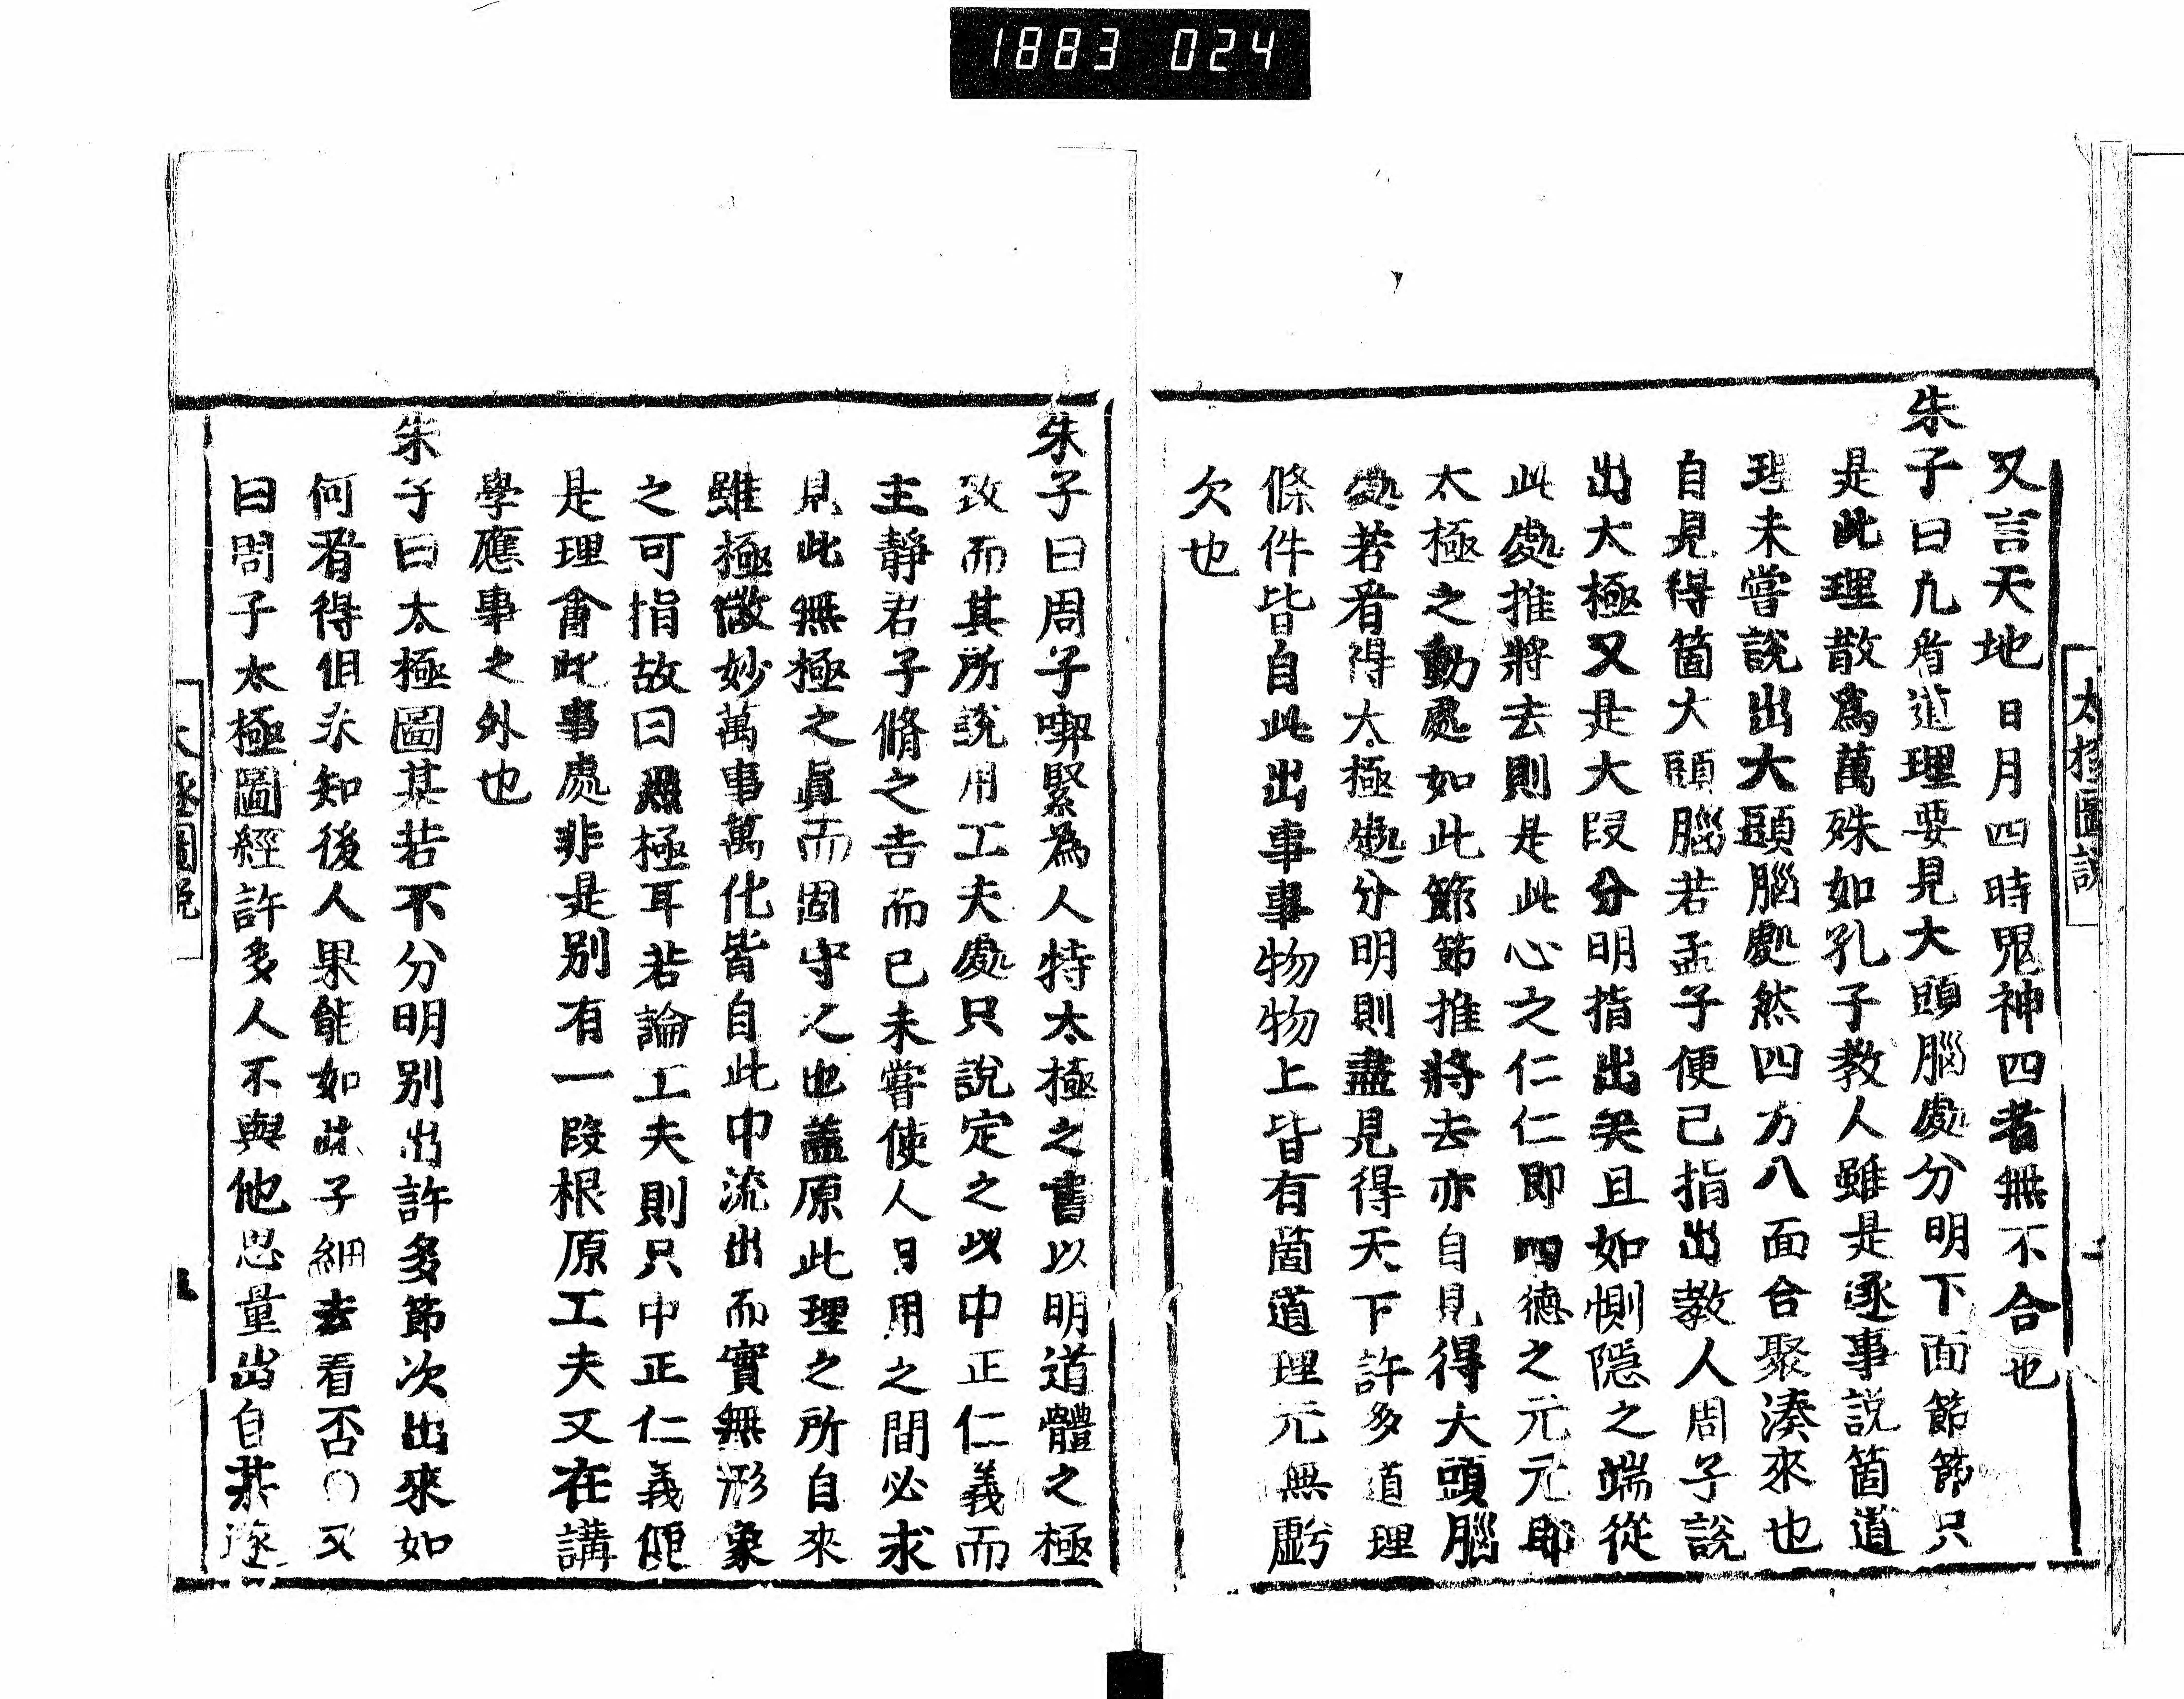 1883 024
太極圖說
又言天地日月四時鬼神四者無不合也
朱子曰凡看道理要見大頭腦處分明下面節節只
是此理散爲萬殊如孔子教人雖是逐事說箇道
理未嘗說出大頭腦處然四方八面合聚湊來也
自見得箇大頭腦若孟子便已指出教人周子說
出太極又是大段分明指出矣且如惻隱之端從
此處推將去則是此心之仁仁即四德之元元即
太極之動處如此節節推將去亦自見得大頭腦
處若看得太極處分明則盡見得天下許多道理
條件皆自此出事事物物上皆有箇道理元無虧
欠也
朱子曰周子喫緊為人特太極之書以明道體之極
致而其所說用工夫處只說定之以中正仁義而
主靜君子脩之吉而已未嘗使人日用之間必求
見此無極之眞而固守之也蓋原此理之所自來
雖極微妙萬事萬化皆自此中流出而實無形象
之可指故曰無極耳若論工夫則只中正仁義便
是理會此事處非是別有一段根原工夫又在講
學應事之外也
朱子曰太極圖某若不分明別出許多節次出來如
何看得但未知後人果能如此子細去看否○又
曰周子太極圖經許多人不與他思量出自某逐
太極圖說